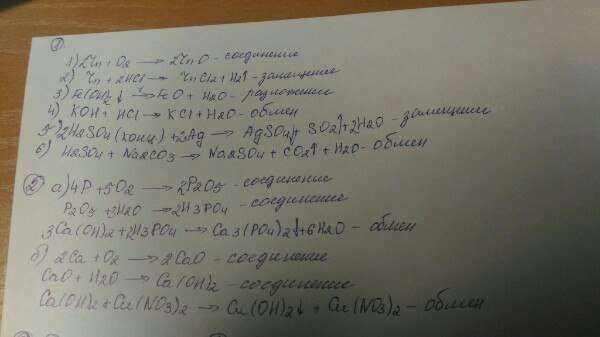 ①
1) 2Zn + O2 → 2ZnO - соединение
2) Zn + 2HCl → ZnCl2 + H2↑ - замещение
3) Fe(OH)2 ↓ → FeO + H2O - разложение
4) KOH + HCl → KCl + H2O - обмен
5) 2H2SO4 (конц) + 2Ag → AgSO4↓ + SO2↑ + 2H2O - замещение
6) H2SO4 + Na2CO3 → Na2SO4 + CO2↑ + H2O - обмен
② а) 4P + 5O2 → 2P2O5 - соединение
P2O5 + 3H2O → 2H3PO4 - соединение
3Ca(OH)2 + 2H3PO4 → Ca3(PO4)2↓ + 6H2O - обмен
б) 2Ca + O2 → 2CaO - соединение
CaO + H2O → Ca(OH)2 - соединение
Ca(OH)2 + Cu(NO3)2 → Cu(OH)2↓ + Ca(NO3)2 - обмен